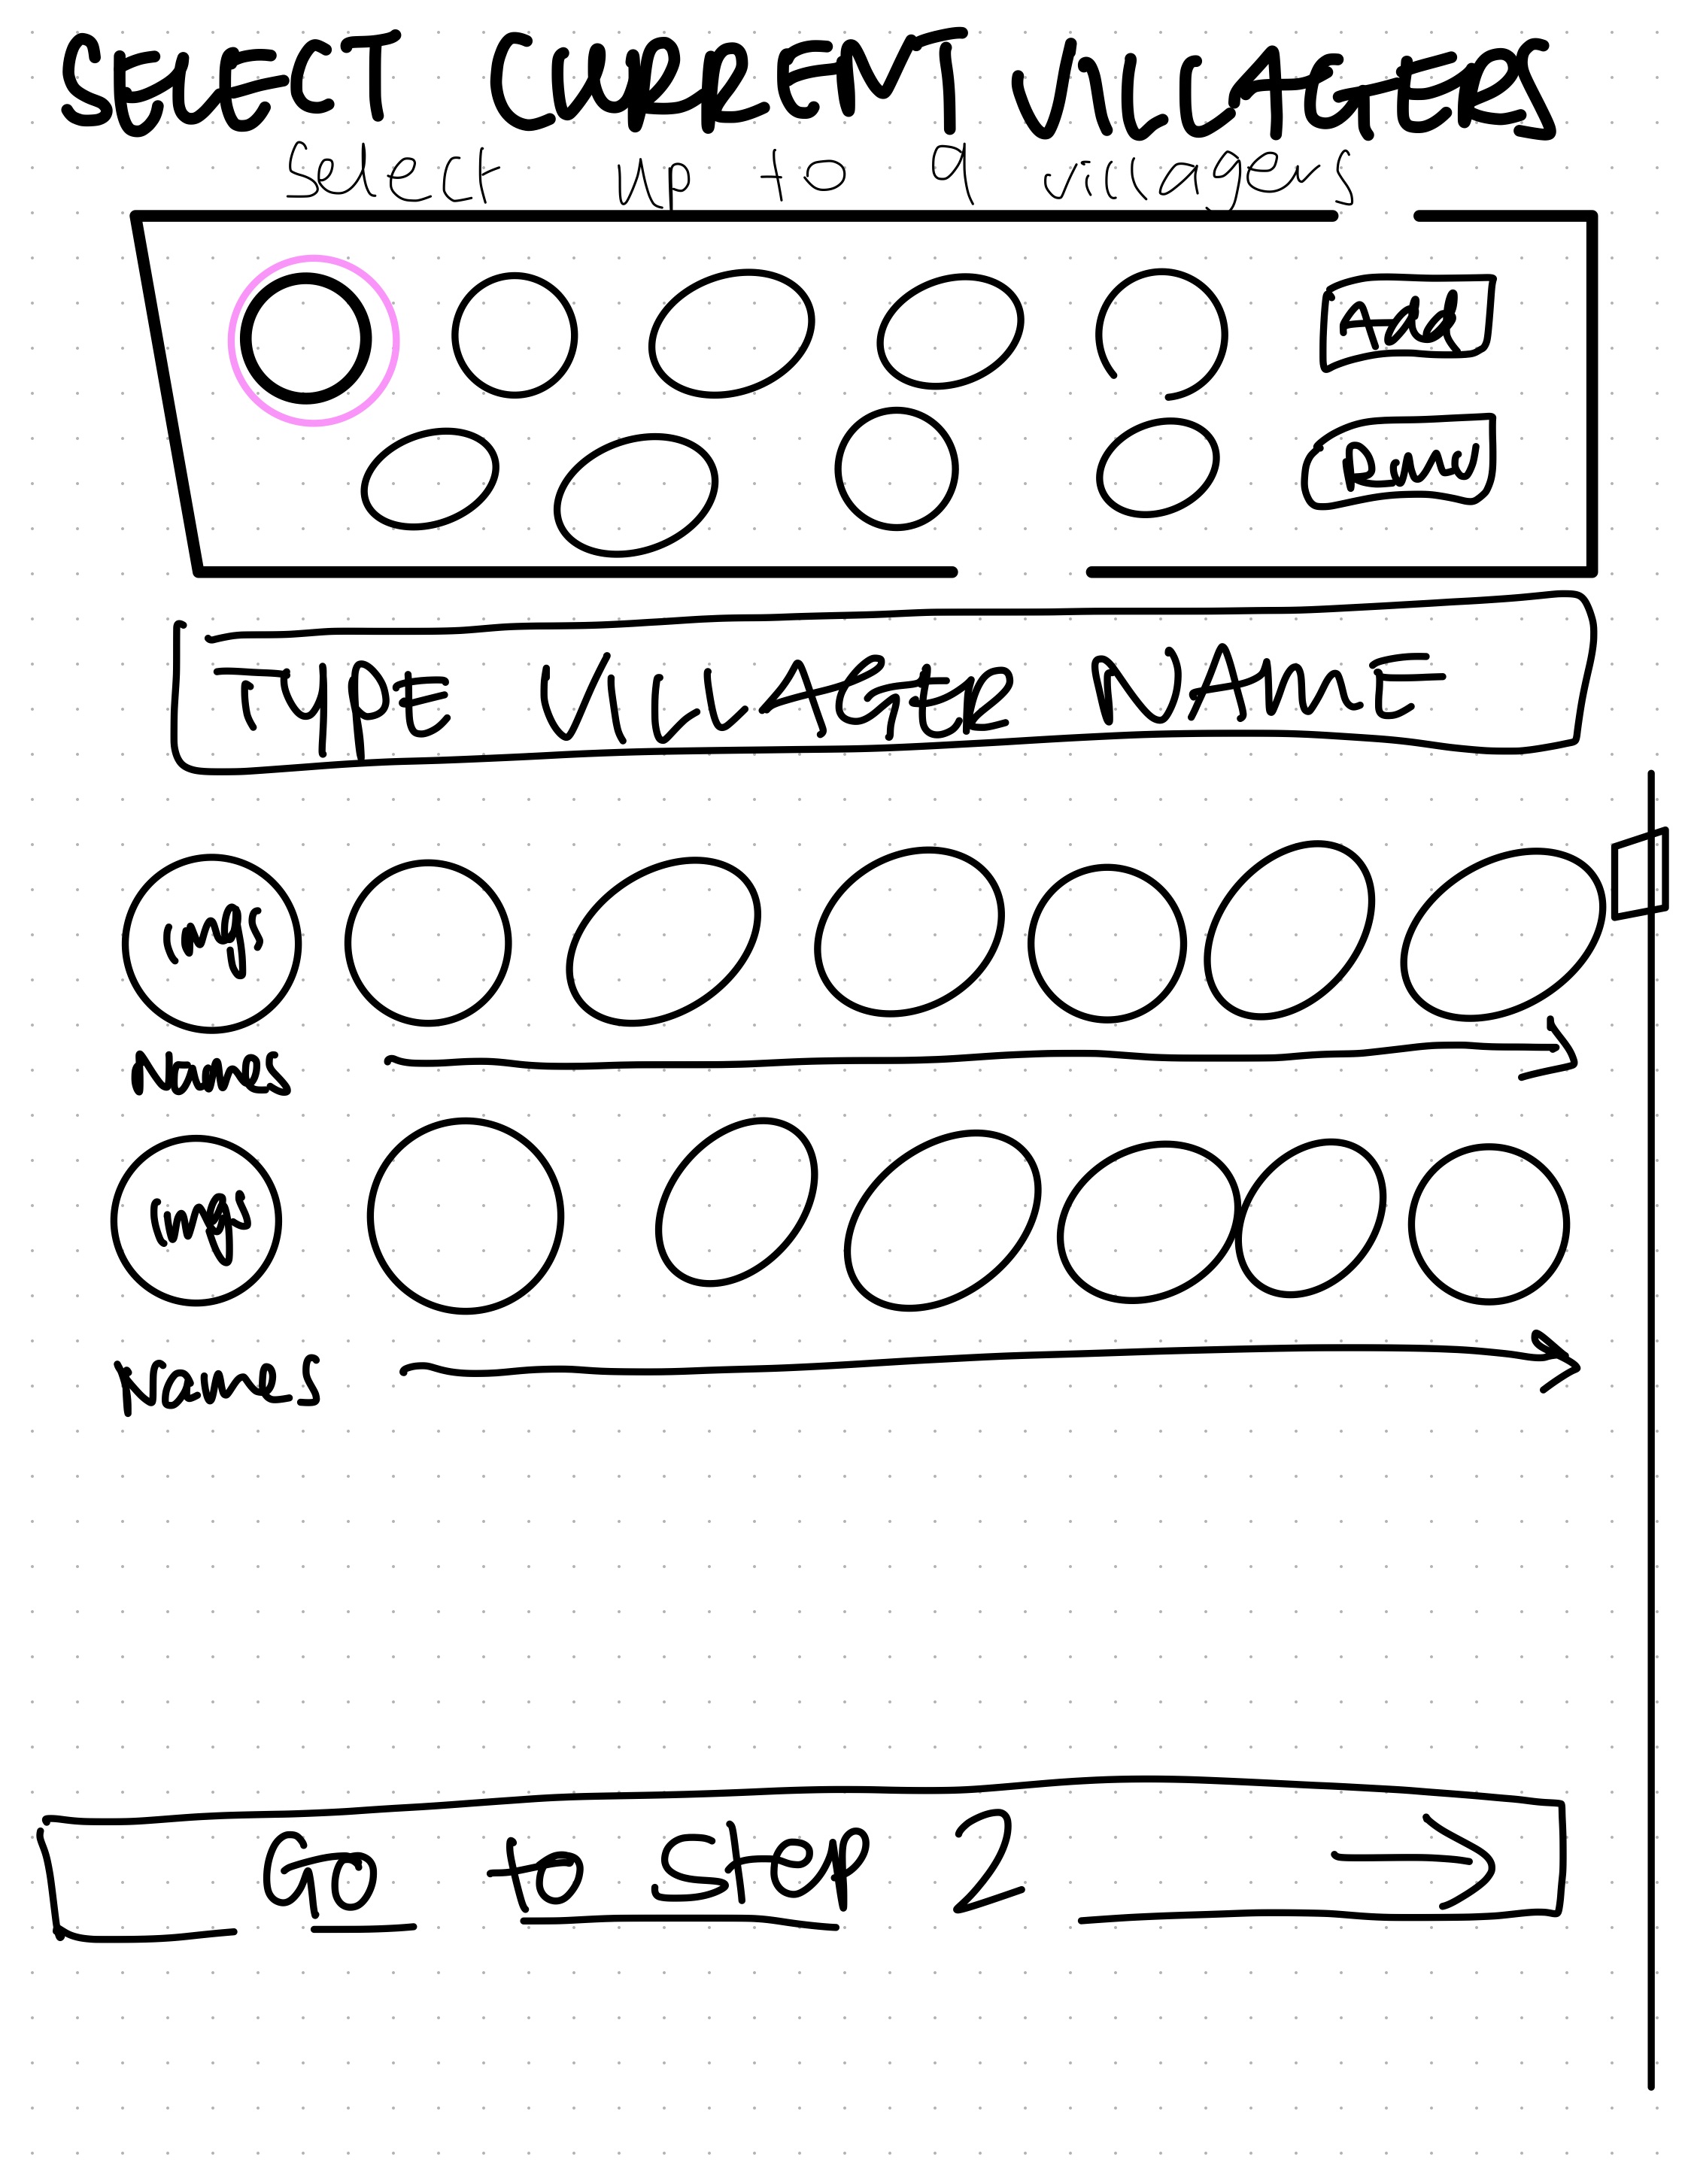 SELECT CURRENT VILLAGERS
Select up to 9 villagers
Add
TYPE VILLAGER NAME
imgs
Names
imgs
Names
Go to Step 2